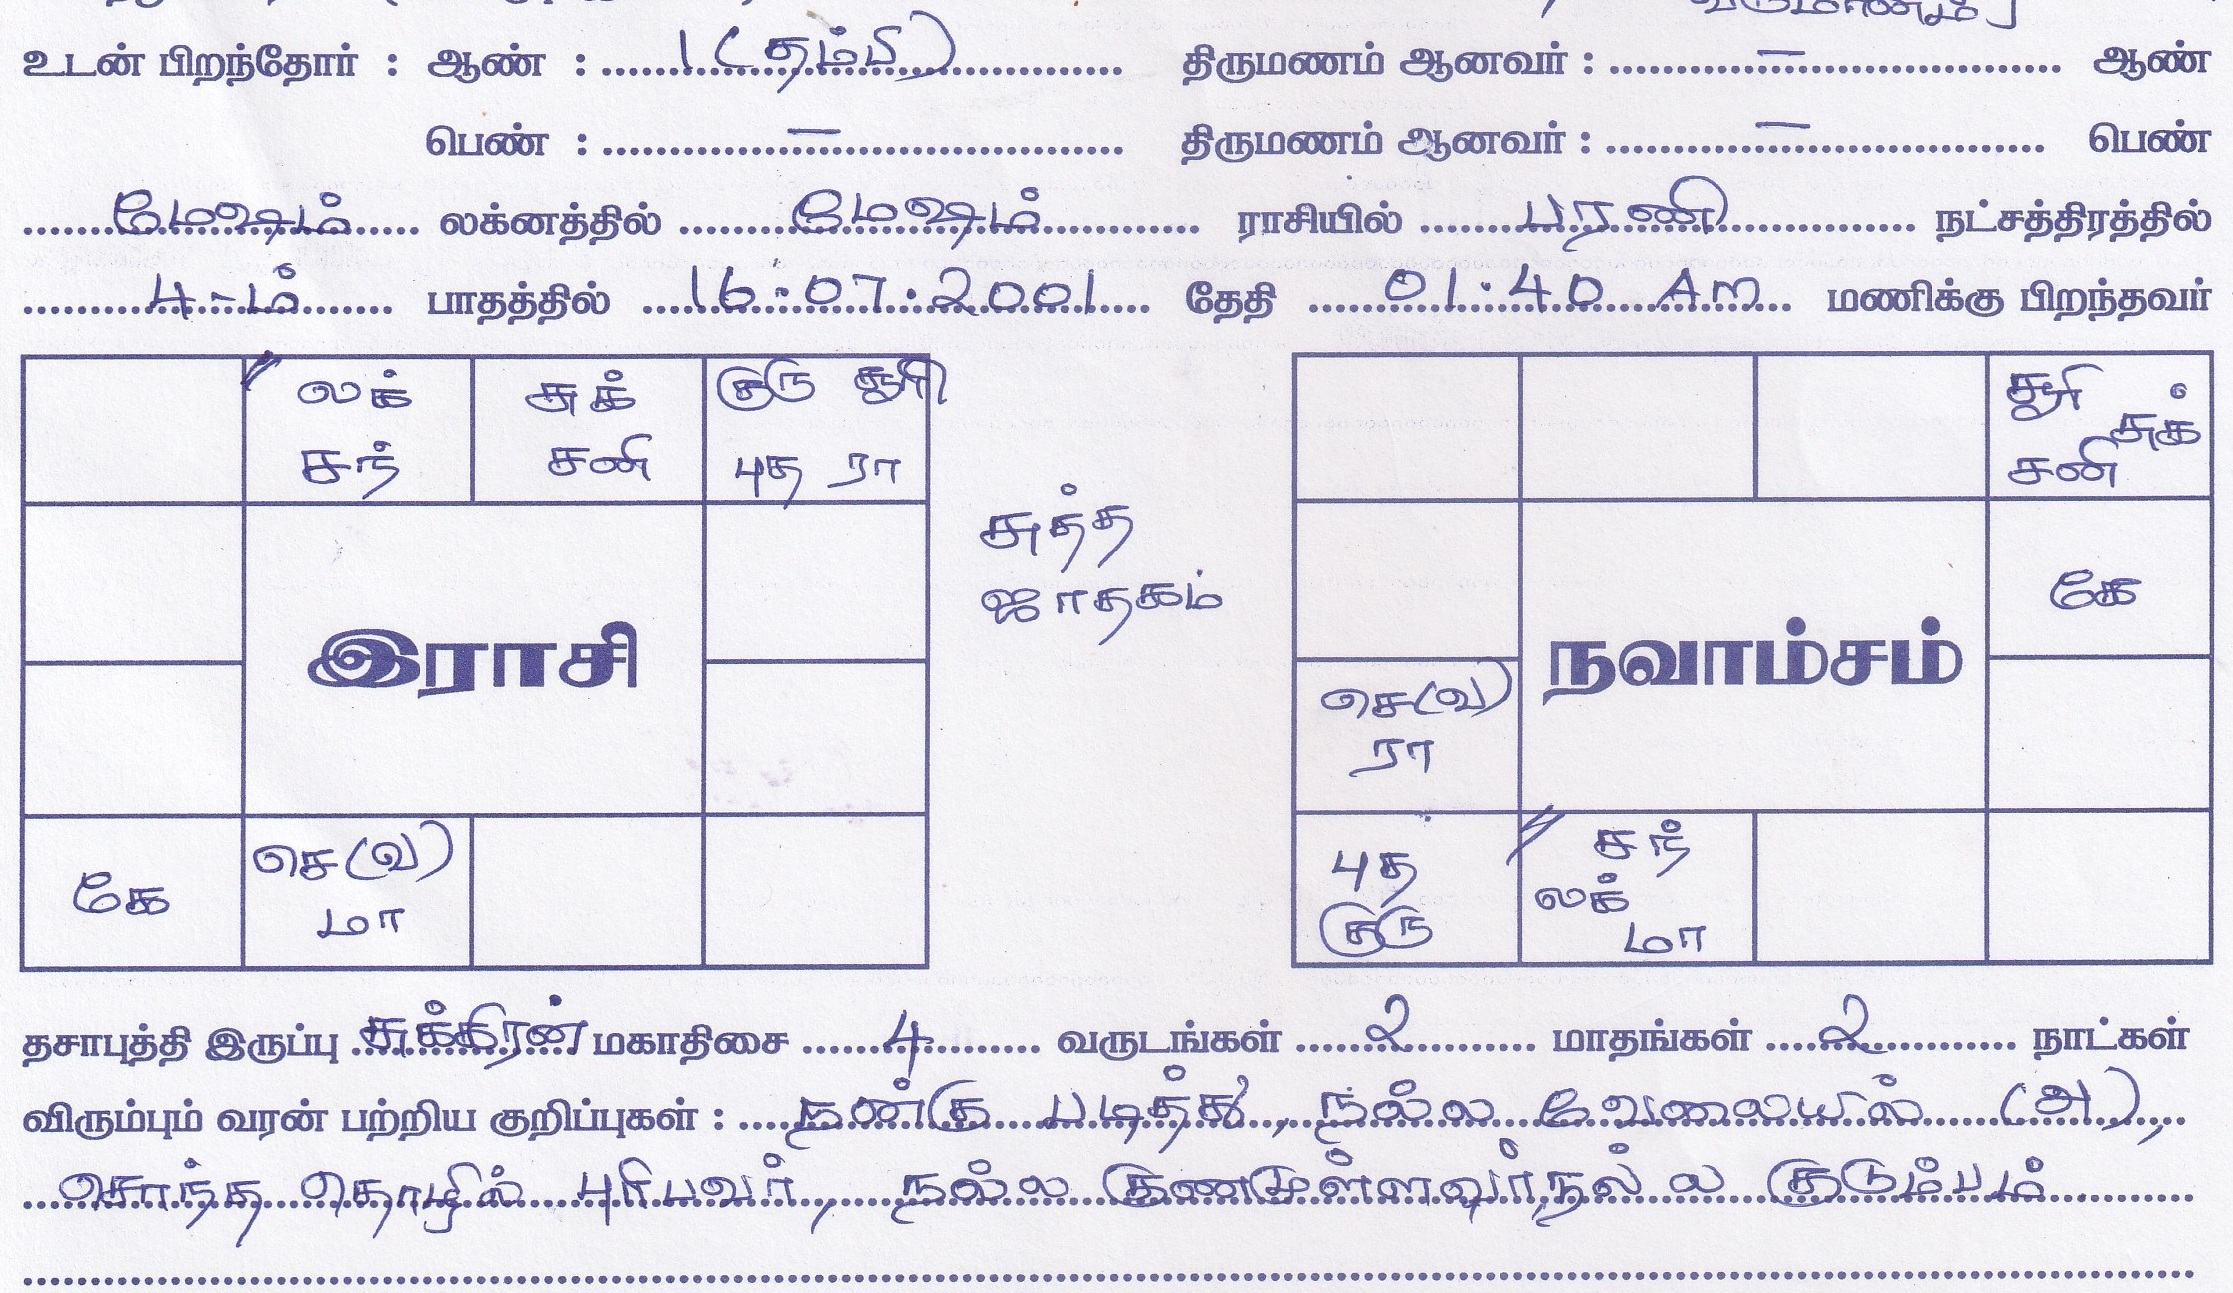 வருமானம்)
உடன் பிறந்தோர் : ஆண் : 1 (தம்பி) திருமணம் ஆனவர் : — ஆண்
பெண் : — திருமணம் ஆனவர் : — பெண்
மேஷம் லக்னத்தில் மேஷம் ராசியில் பரணி நட்சத்திரத்தில்
4-ம் பாதத்தில் 16.07.2001 தேதி 01.40 AM மணிக்கு பிறந்தவர்
லக்
சந்
சுக்
சனி
குரு சூரி
புத ரா
இராசி
கே
செ(வ)
மா
சுத்த
ஜாதகம்
சூரி
சுக்
சனி
கே
நவாம்சம்
செ(வ)
ரா
புத
குரு
சந்
லக்
மா
தசாபுத்தி இருப்பு சுக்கிரன் மகாதிசை 4 வருடங்கள் 2 மாதங்கள் 2 நாட்கள்
விரும்பும் வரன் பற்றிய குறிப்புகள் : நன்கு படித்து, நல்ல வேலையில் (அ),
சொந்த தொழில் புரிபவர், நல்ல குணமுள்ளவர், நல்ல குடும்பம்